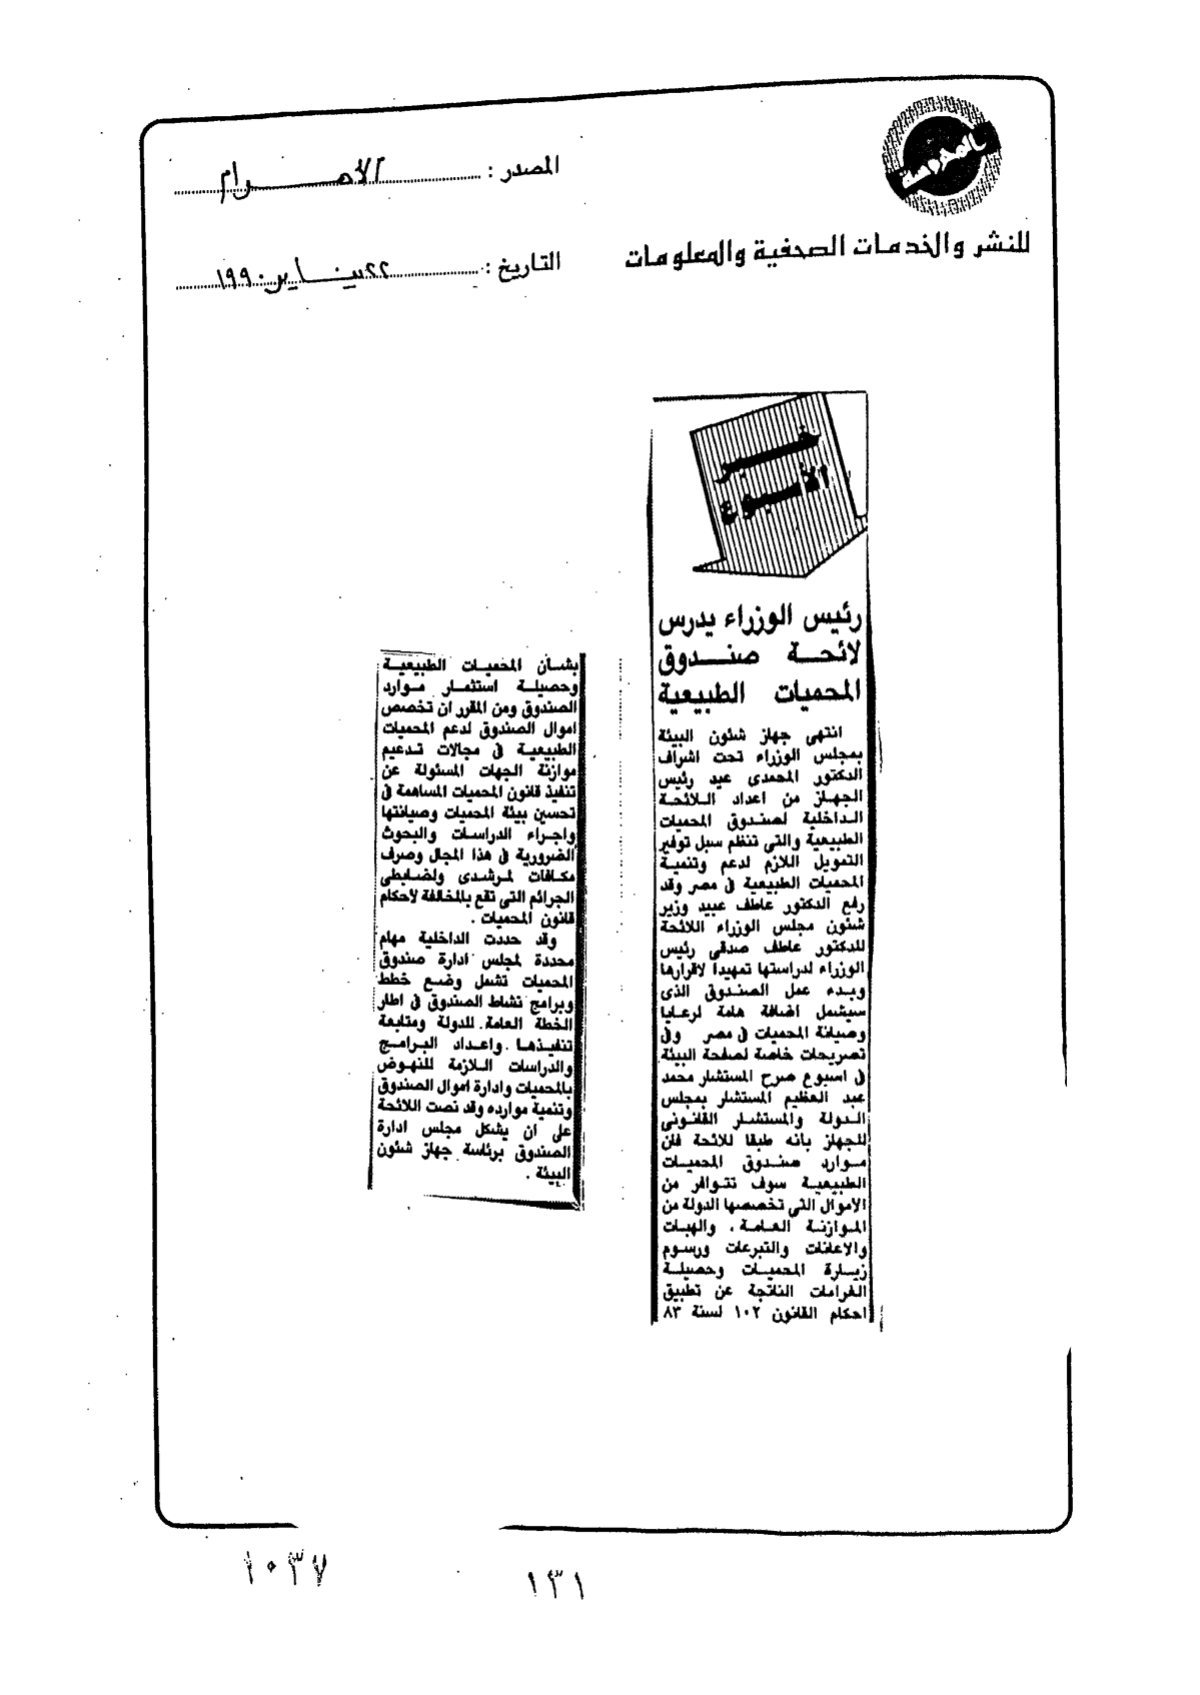 للنشر والخدمات الصحفية والمعلومات
المصدر : الأهرام
التاريخ : ٢٢ يناير ١٩٩٠
خبر
الأسبوع
رئيس الوزراء يدرس
لائحة صندوق
المحميات الطبيعية
انتهى جهاز شئون البيئة
بمجلس الوزراء تحت اشراف
الدكتور المحمدى عيد رئيس
الجهاز من اعداد اللائحة
الداخلية لصندوق المحميات
الطبيعية والتى تنظم سبل توفير
التمويل اللازم لدعم وتنمية
المحميات الطبيعية فى مصر وقد
رفع الدكتور عاطف عبيد وزير
شئون مجلس الوزراء اللائحة
للدكتور عاطف صدقى رئيس
الوزراء لدراستها تمهيدا لاقرارها
وبدء عمل الصندوق الذى
سيشمل اضافة هامة لرعايا
وصيانة المحميات فى مصر وفى
تصريحات خاصة لصفحة البيئة
فى اسبوع صرح المستشار محمد
عبد العظيم المستشار بمجلس
الدولة والمستشار القانونى
للجهاز بانه طبقا للائحة فان
موارد صندوق المحميات
الطبيعية سوف تتوافر من
الاموال التى تخصصها الدولة من
الموازنة العامة ، والهبات
والاعانات والتبرعات ورسوم
زيارة المحميات وحصيلة
الغرامات الناتجة عن تطبيق
احكام القانون ١٠٢ لسنة ٨٣
بشأن المحميات الطبيعية
وحصيلة استثمار موارد
الصندوق ومن المقرر ان تخصص
اموال الصندوق لدعم المحميات
الطبيعية فى مجالات تدعيم
موازنة الجهات المسئولة عن
تنفيذ قانون المحميات المساهمة فى
تحسين بيئة المحميات وصيانتها
واجراء الدراسات والبحوث
الضرورية فى هذا المجال وصرف
مكافات لمرشدى ولضابطى
الجرائم التى تقع بالمخالفة لاحكام
قانون المحميات .
وقد حددت الداخلية مهام
محددة لمجلس ادارة صندوق
المحميات تشمل وضع خطط
وبرامج نشاط الصندوق فى اطار
الخطة العامة للدولة ومتابعة
تنفيذها . واعداد البرامج
والدراسات اللازمة للنهوض
بالمحميات وادارة اموال الصندوق
وتنمية موارده وقد نصت اللائحة
على ان يشكل مجلس ادارة
الصندوق برئاسة جهاز شئون
البيئة .
١٠٣٧
١٣١